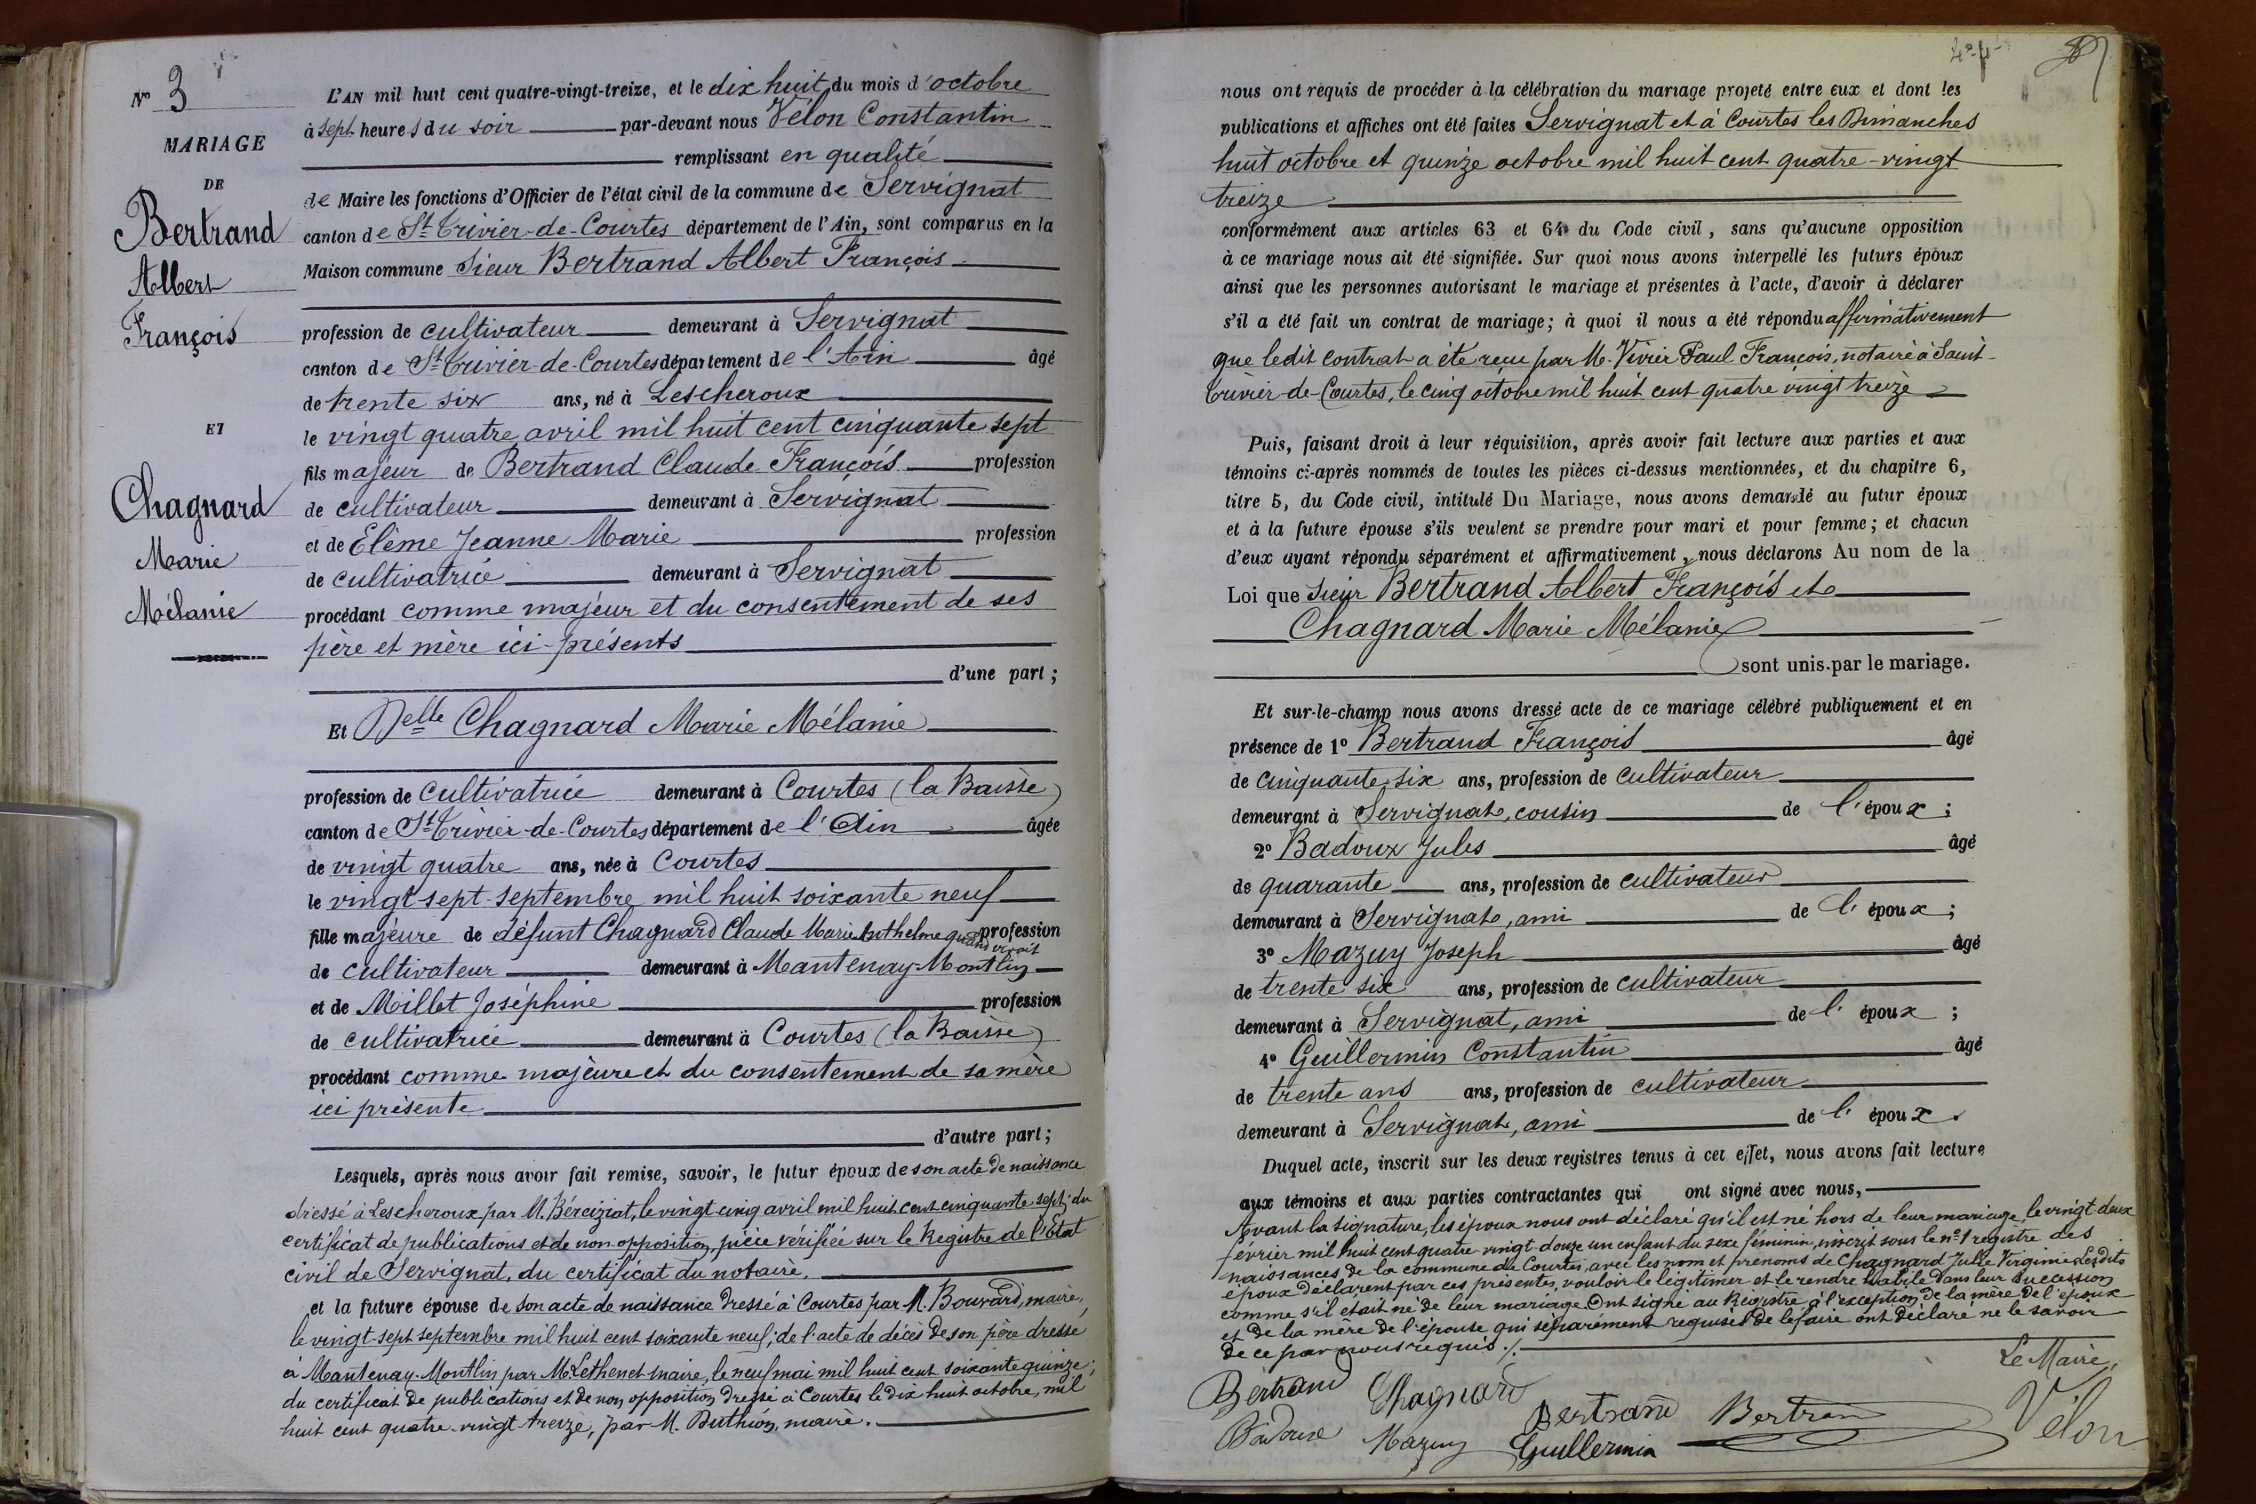 N° 3
MARIAGE
DE
Bertrand
Albert
François
ET
Chagnard
Marie
Mélanie
L'AN mil huit cent quatre-vingt-treize, et le dix huit du mois d'octobre
à sept heures du soir par-devant nous Vélon Constantin
remplissant en qualité
de Maire les fonctions d'Officier de l'état civil de la commune de Servignat
canton de St Trivier-de-Courtes département de l'Ain, sont comparus en la
Maison commune Sieur Bertrand Albert François
profession de cultivateur demeurant à Servignat
canton de St Trivier-de-Courtes département de l'Ain âgé
de trente six ans, né à Lescheroux
le vingt quatre avril mil huit cent cinquante sept
fils majeur de Bertrand Claude François profession
de cultivateur demeurant à Servignat
et de Elème Jeanne Marie profession
de cultivatrice demeurant à Servignat
procédant comme majeur et du consentement de ses
père et mère ici présents
d'une part ;
Et Delle Chagnard Marie Mélanie
profession de cultivatrice demeurant à Courtes (la Baisse)
canton de St Trivier-de-Courtes département de l'Ain âgée
de vingt quatre ans, née à Courtes
le vingt-sept septembre mil huit soixante neuf
fille majeure de défunt Chagnard Claude Marie Anthelme quand vivait profession
de cultivateur demeurant à Mantenay-Montlin
et de Millet Joséphine profession
de cultivatrice demeurant à Courtes (la Baisse)
procédant comme majeure et du consentement de sa mère
ici présente
d'autre part ;
Lesquels, après nous avoir fait remise, savoir, le futur époux de son acte de naissance
dressé à Lescheroux par M. Béreiziat, le vingt-cinq avril mil huit cent cinquante-sept ; du
certificat de publications et de non opposition, pièce vérifiée sur le Registre de l'État
civil de Servignat, du certificat du notaire.
et la future épouse de son acte de naissance dressé à Courtes par M. Bouvard, maire,
le vingt-sept septembre mil huit cent soixante neuf ; de l'acte de décès de son père dressé
à Mantenay-Montlin par M. Lethenet maire, le neuf mai mil huit cent soixante quinze ;
du certificat de publications et de non opposition dressé à Courtes le dix huit octobre, mil
huit cent quatre-vingt-treize, par M. Buthion, maire.
nous ont requis de procéder à la célébration du mariage projeté entre eux et dont les
publications et affiches ont été faites Servignat et à Courtes les Dimanches
huit octobre et quinze octobre mil huit cent quatre-vingt
treize
conformément aux articles 63 et 64 du Code civil, sans qu'aucune opposition
à ce mariage nous ait été signifiée. Sur quoi nous avons interpellé les futurs époux
ainsi que les personnes autorisant le mariage et présentes à l'acte, d'avoir à déclarer
s'il a été fait un contrat de mariage ; à quoi il nous a été répondu affirmativement
que ledit contrat a été reçu par M. Vivier Paul François, notaire à Saint-
Trivier-de-Courtes, le cinq octobre mil huit cent quatre vingt treize
Puis, faisant droit à leur réquisition, après avoir fait lecture aux parties et aux
témoins ci-après nommés de toutes les pièces ci-dessus mentionnées, et du chapitre 6,
titre 5, du Code civil, intitulé Du Mariage, nous avons demandé au futur époux
et à la future épouse s'ils veulent se prendre pour mari et pour femme ; et chacun
d'eux ayant répondu séparément et affirmativement, nous déclarons Au nom de la
Loi que Sieur Bertrand Albert François et
Chagnard Marie Mélanie
sont unis par le mariage.
Et sur-le-champ nous avons dressé acte de ce mariage célébré publiquement et en
présence de 1° Bertrand François âgé
de cinquante six ans, profession de cultivateur
demeurant à Servignat, cousin de l'époux ;
2° Badoux Jules âgé
de quarante ans, profession de cultivateur
demeurant à Servignat, ami de l'époux ;
3° Mazuy Joseph âgé
de trente six ans, profession de cultivateur
demeurant à Servignat, ami de l'époux ;
4° Guillermin Constantin âgé
de trente ans ans, profession de cultivateur
demeurant à Servignat, ami de l'époux.
Duquel acte, inscrit sur les deux registres tenus à cet effet, nous avons fait lecture
aux témoins et aux parties contractantes qui ont signé avec nous,
Avant la signature, les époux nous ont déclaré qu'il est né hors de leur mariage, le vingt-deux
février mil huit cent quatre vingt-douze un enfant du sexe féminin, inscrit sous le n° 1 registre des
naissances de la commune de Courtes, avec les nom et prénoms de Chagnard Julie Virginie. Lesdits
époux déclarent par ces présentes, vouloir le légitimer et le rendre habile dans leur succession
comme s'il était né de leur mariage. Ont signé au Registre à l'exception de la mère de l'époux
et de la mère de l'épouse qui séparément requises de le faire ont déclaré ne le savoir
de ce par nous requis ./.
Le Maire,
Bertrand Chagnard Bertrand Bertran Vélon
Badoux Mazuy Guillermin